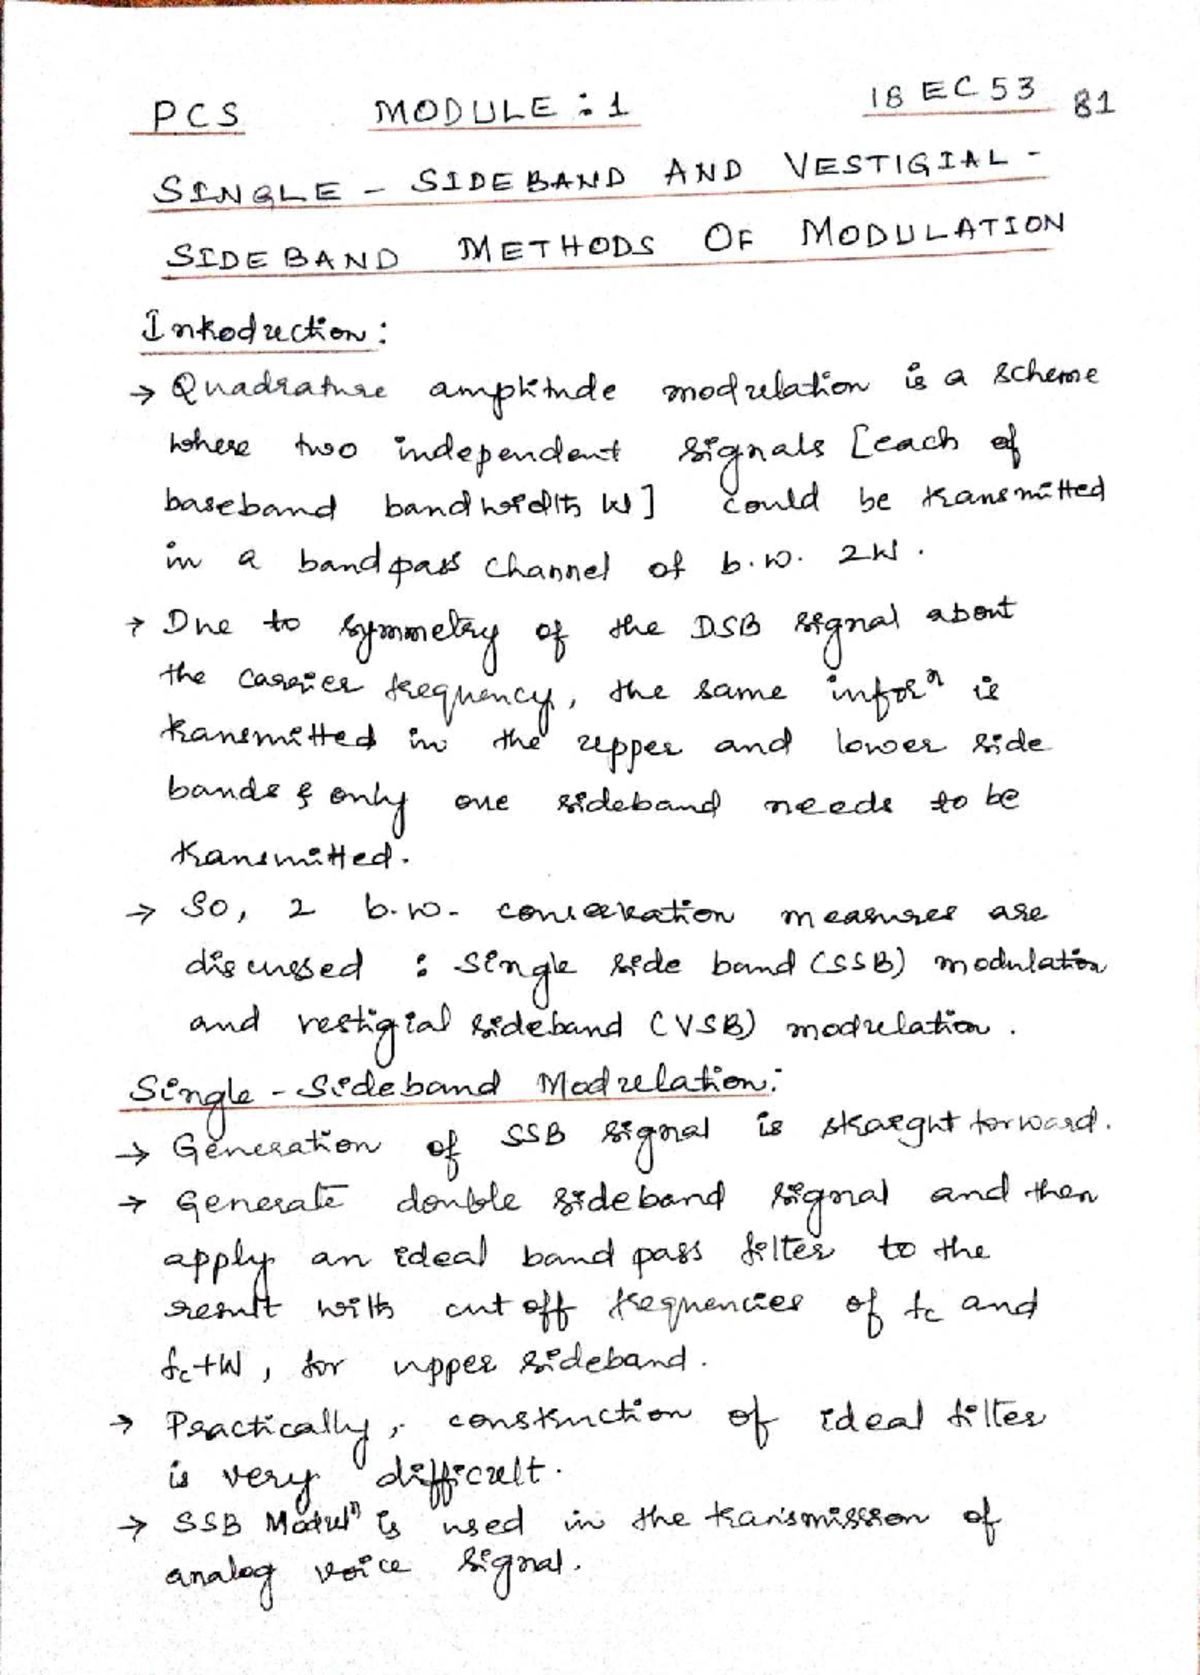 PCS MODULE : 1 18 EC 53 81
SINGLE - SIDEBAND AND VESTIGIAL -
SIDEBAND METHODS OF MODULATION
Introduction :
→ Quadrature amplitude modulation is a scheme
where two independent signals [each of
baseband bandwidth W] could be transmitted
in a bandpass channel of b.w. 2W.
→ Due to symmetry of the DSB signal about
the carrier frequency, the same inforⁿ is
transmitted in the upper and lower side
bands & only one sideband needs to be
transmitted.
→ So, 2 b.w. conservation measures are
discussed : Single side band (SSB) modulation
and vestigial sideband (VSB) modulation.
Single - Sideband Modulation:
→ Generation of SSB signal is straightforward.
→ Generate double sideband signal and then
apply an ideal band pass filter to the
result with cut off frequencies of fc and
fc+W, for upper sideband.
→ Practically, construction of ideal filter
is very difficult.
→ SSB Modulⁿ is used in the transmission of
analog voice signal.